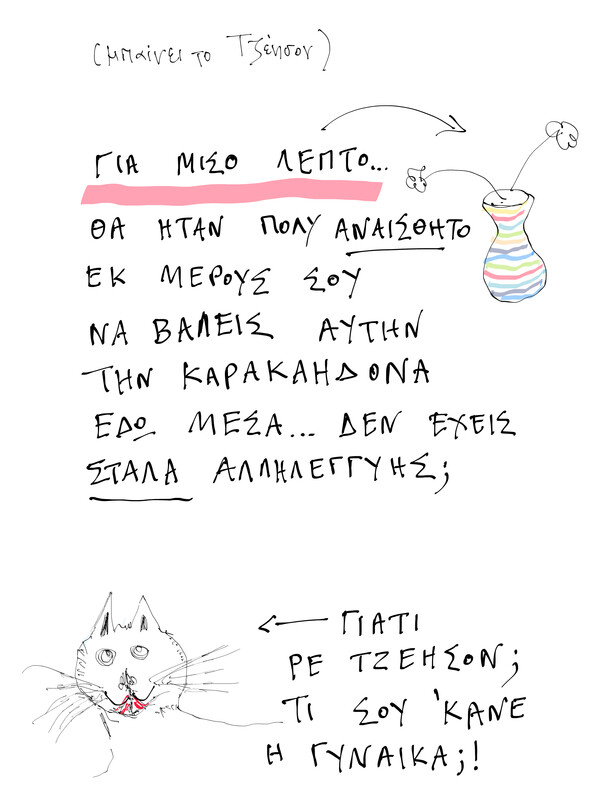 (μπαίνει το Τζέησον)
ΓΙΑ ΜΙΣΟ ΛΕΠΤΟ...
ΘΑ ΗΤΑΝ ΠΟΛΥ ΑΝΑΙΣΘΗΤΟ
ΕΚ ΜΕΡΟΥΣ ΣΟΥ
ΝΑ ΒΑΛΕΙΣ ΑΥΤΗΝ
ΤΗΝ ΚΑΡΑΚΑΗΔΟΝΑ
ΕΔΩ ΜΕΣΑ... ΔΕΝ ΕΧΕΙΣ
ΣΤΑΛΑ ΑΛΛΗΛΕΓΓΥΗΣ;
ΓΙΑΤΙ
ΡΕ ΤΖΕΗΣΟΝ;
ΤΙ ΣΟΥ 'ΚΑΝΕ
Η ΓΥΝΑΙΚΑ;!